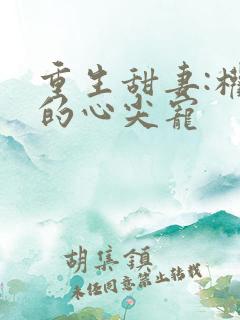 重生甜妻:权
的心尖宠
胡集镇
未经同意禁止转载